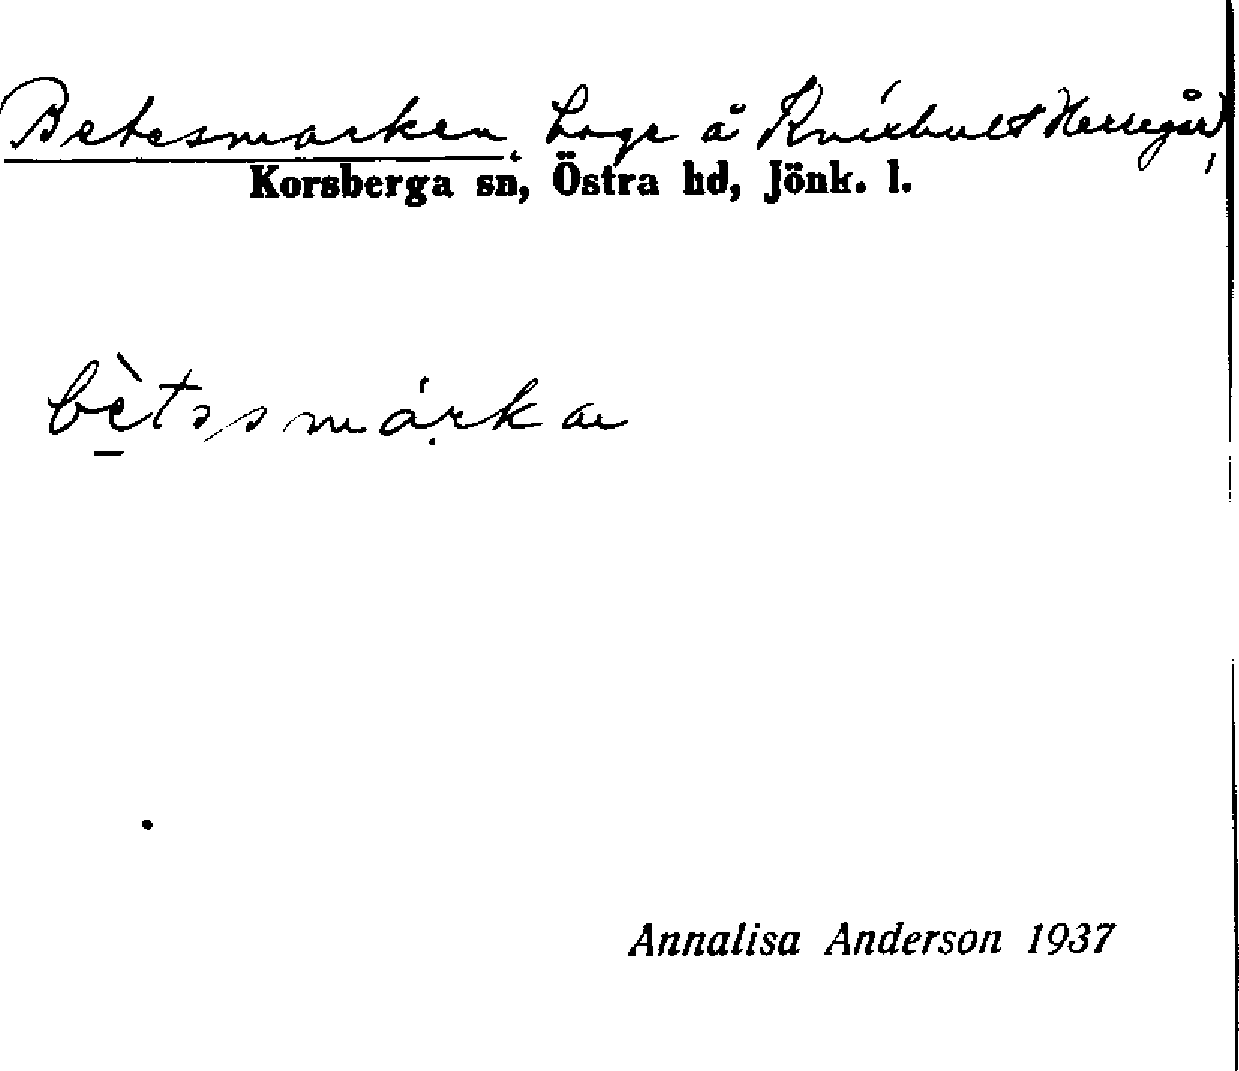 Betesmarken, Hage å Knixhult Herregård,
Korsberga sn, Östra hd, Jönk. l.
bètəsmárkæ
Annalisa Anderson 1937